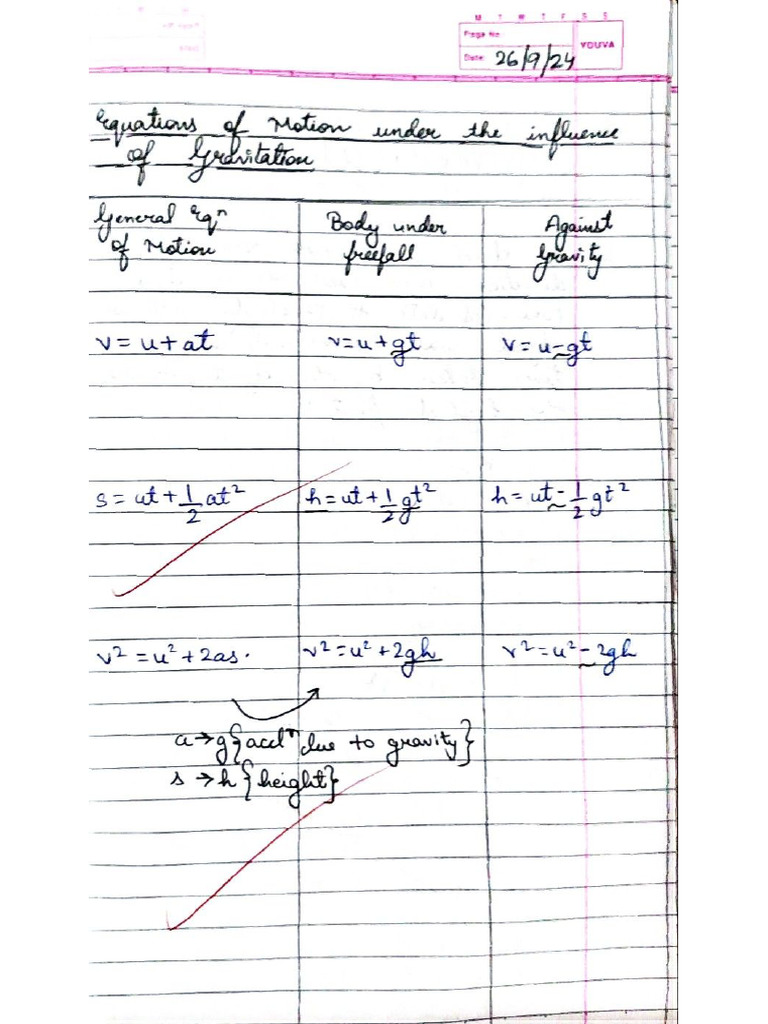 M T W T F S S
Page No
YOUVA
Date: 26/9/24
Equations of Motion under the influence
of Gravitation
General Eqⁿ of Motion | Body under freefall | Against gravity
v = u + at | v = u + gt | v = u - gt
s = ut + 1/2 at² | h = ut + 1/2 gt² | h = ut - 1/2 gt²
v² = u² + 2as. | v² = u² + 2gh | v² = u² - 2gh
a → g {accⁿ due to gravity}
s → h {height}